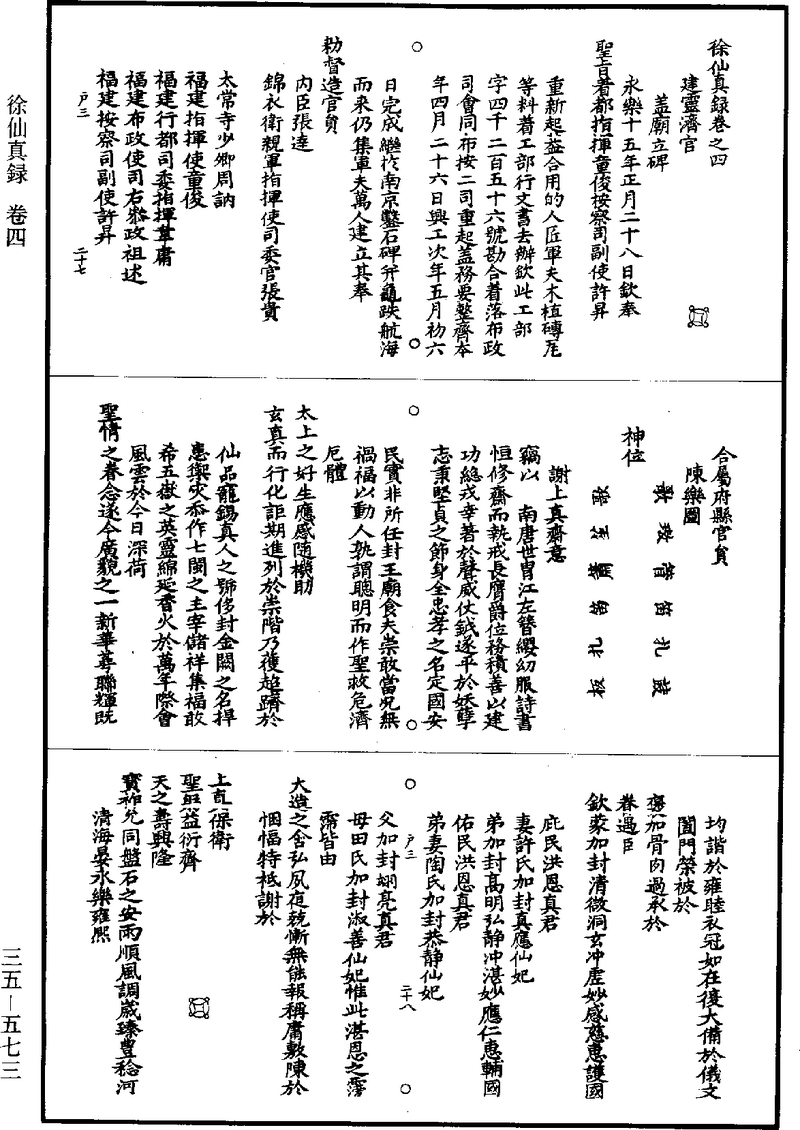 徐仙真録卷之四
建靈濟宫
盖廟立碑
永樂十五年正月二十八日欽奉
聖旨着都指揮童俊按察司副使許昇
重新起盖合用的人匠軍夫木植磚瓦
等料着工部行文書去辦欽此工部
字四千二百五十六號勘合着落布政
司會同布按二司重起盖務要整齊本
年四月二十六日興工次年五月初六
日完成繼於南京鑿石碑并龜趺航海
而来仍集軍夫萬人建立其奉
勑督造官員
内臣張達
錦衣衛親軍指揮使司委官張貴
太常寺少卿周訥
福建指揮使童俊
福建行都司委指揮韋庸
福建布政使司右叅政祖述
福建按察司副使許昇
戸三
二十七
合屬府縣官員
陳樂圖
神位
謝上真齋意
竊以 南唐世胄江左簪纓幼服詩書
恒修齋而執戒長膺爵位務積善以建
功緫戎幸著於聲威仗鉞遂平於妖孽
志秉堅貞之節身全忠孝之名定國安
民實非所任封王廟食夫崇敢當况無
禍福以動人孰謂聰明而作聖救危濟
厄體
太上之好生應感隨機助
玄真而行化詎期進列於崇階乃獲超躋於
仙品寵錫真人之號侈封金闕之名捍
患禦灾忝作七閩之主宰儲祥集福敢
希五嶽之英靈綿延香火於萬年際會
風雲於今日深荷
聖情之眷念遂令廣貌之一新華萼聯輝既
均諧於雍睦衣冠如在復大備於儀文
闔門榮被於
褒加骨肉過承於
眷遇臣
欽蒙加封清微洞玄冲虚妙感慈惠護國
庇民洪恩真君
妻許氏加封真應仙妃
弟加封高明弘静冲湛妙應仁惠輔國
佑民洪恩真君
弟妻陶氏加封恭静仙妃
戸三
二十八
父加封翊亮真君
母田氏加封淑善仙妃惟此湛恩之霶
霈皆由
大造之含弘夙夜兢慚無能報稱庸敷陳於
悃愊特祗謝於
上真保衛
聖躬益衍齊
天之壽興隆
寳祚允同盤石之安雨順風調歲臻豊稔河
清海晏永樂雍熙
徐仙真録 卷四
三五—五七三